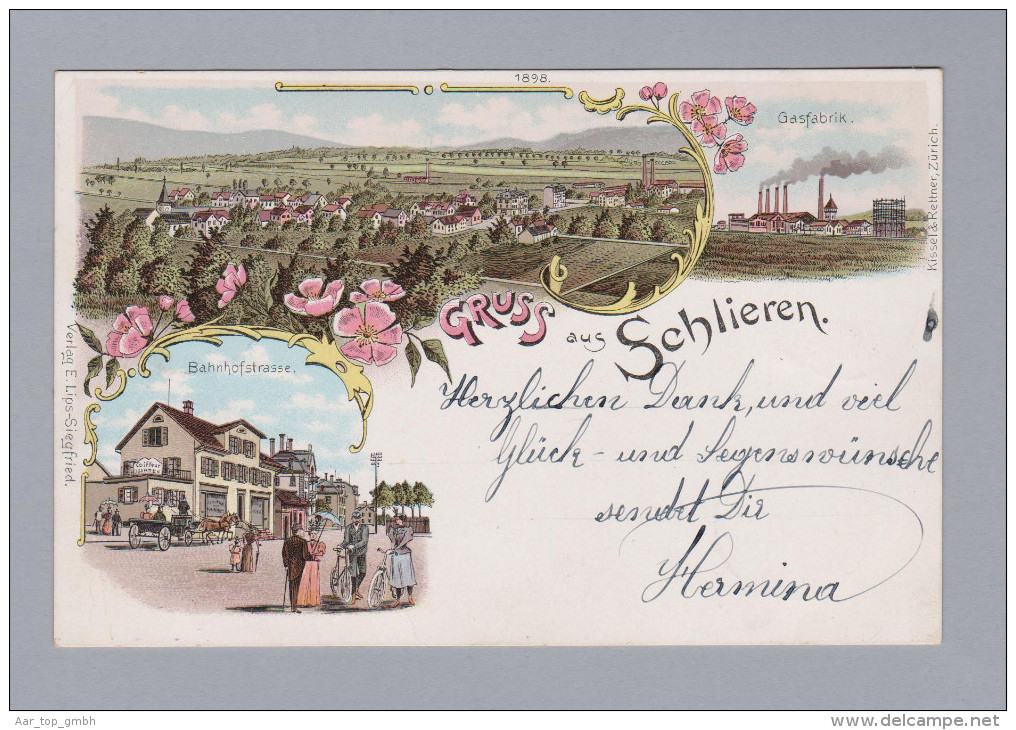 1898.
Gasfabrik.
Kissel & Rettner, Zürich.
GRUSS aus Schlieren.
Verlag E. Lips-Siegfried.
Bahnhofstrasse.
Coiffeur
Herzlichen Dank, und viel
Glück- und Segenswünsche
sendet Dir
Hermina
Aar_top_gmbh
www.delcampe.net